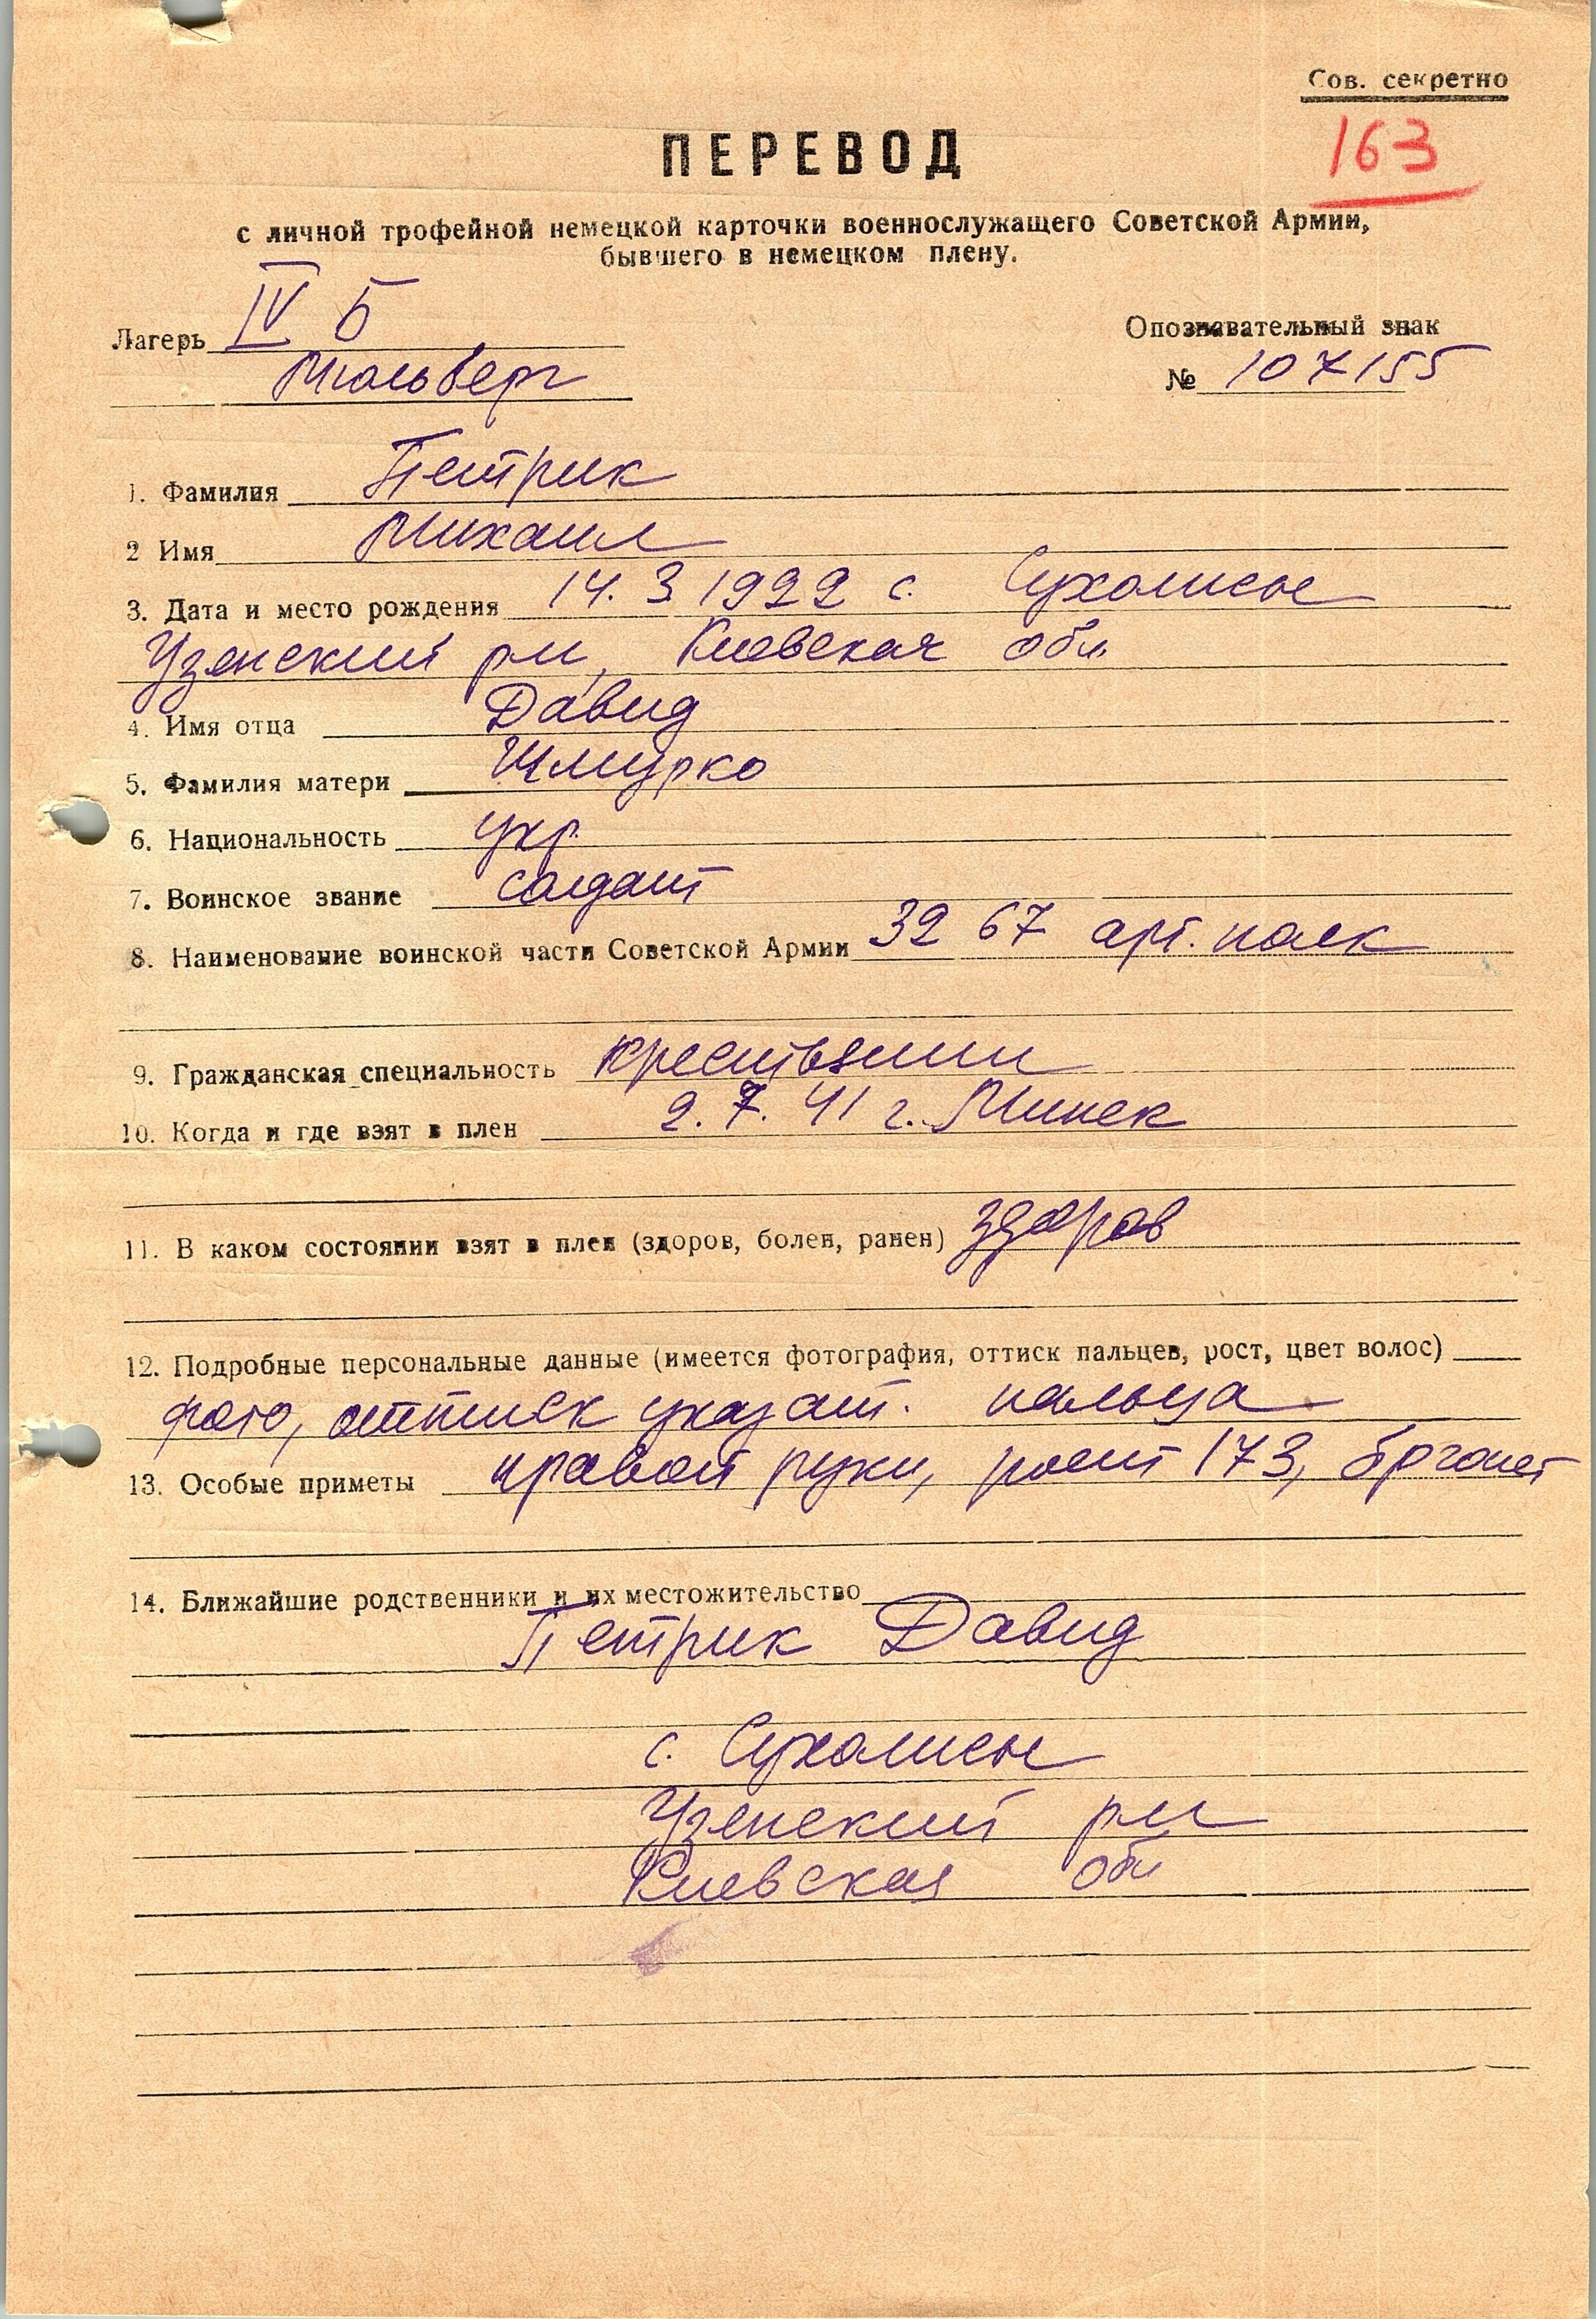 Сов. секретно
163
ПЕРЕВОД
с личной трофейной немецкой карточки военнослужащего Советской Армии,
бывшего в немецком плену.
Лагерь IV Б
Мюльберг
Опознавательный знак
№ 107155
1. Фамилия Петрик
2 Имя Михаил
3. Дата и место рождения 14. 3 1922 с. Сухолисы
Узенский рн, Киевская обл.
4. Имя отца Давид
5. Фамилия матери Шмурко
6. Национальность укр.
7. Воинское звание солдат
8. Наименование воинской части Советской Армии 32 67 арт. полк
9. Гражданская специальность крестьянин
10. Когда и где взят в плен 2. 7. 41 г. Минск
11. В каком состоянии взят в плен (здоров, болен, ранен) здоров
12. Подробные персональные данные (имеется фотография, оттиск пальцев, рост, цвет волос)
фото, оттиск указат. пальца
13. Особые приметы правой руки, рост 173, брюнет
14. Ближайшие родственники и их местожительство
Петрик Давид
с. Сухолисы
Узенский рн
Киевская обл